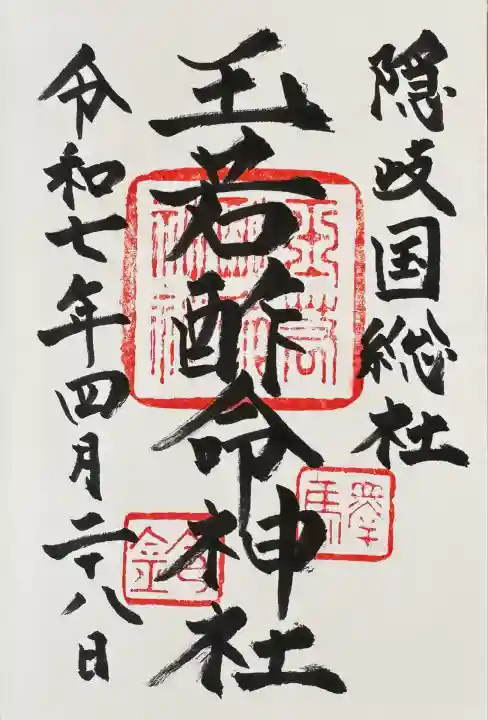 隠岐国総社
玉若酢命神社
令和七年四月二十八日
驛
鈴